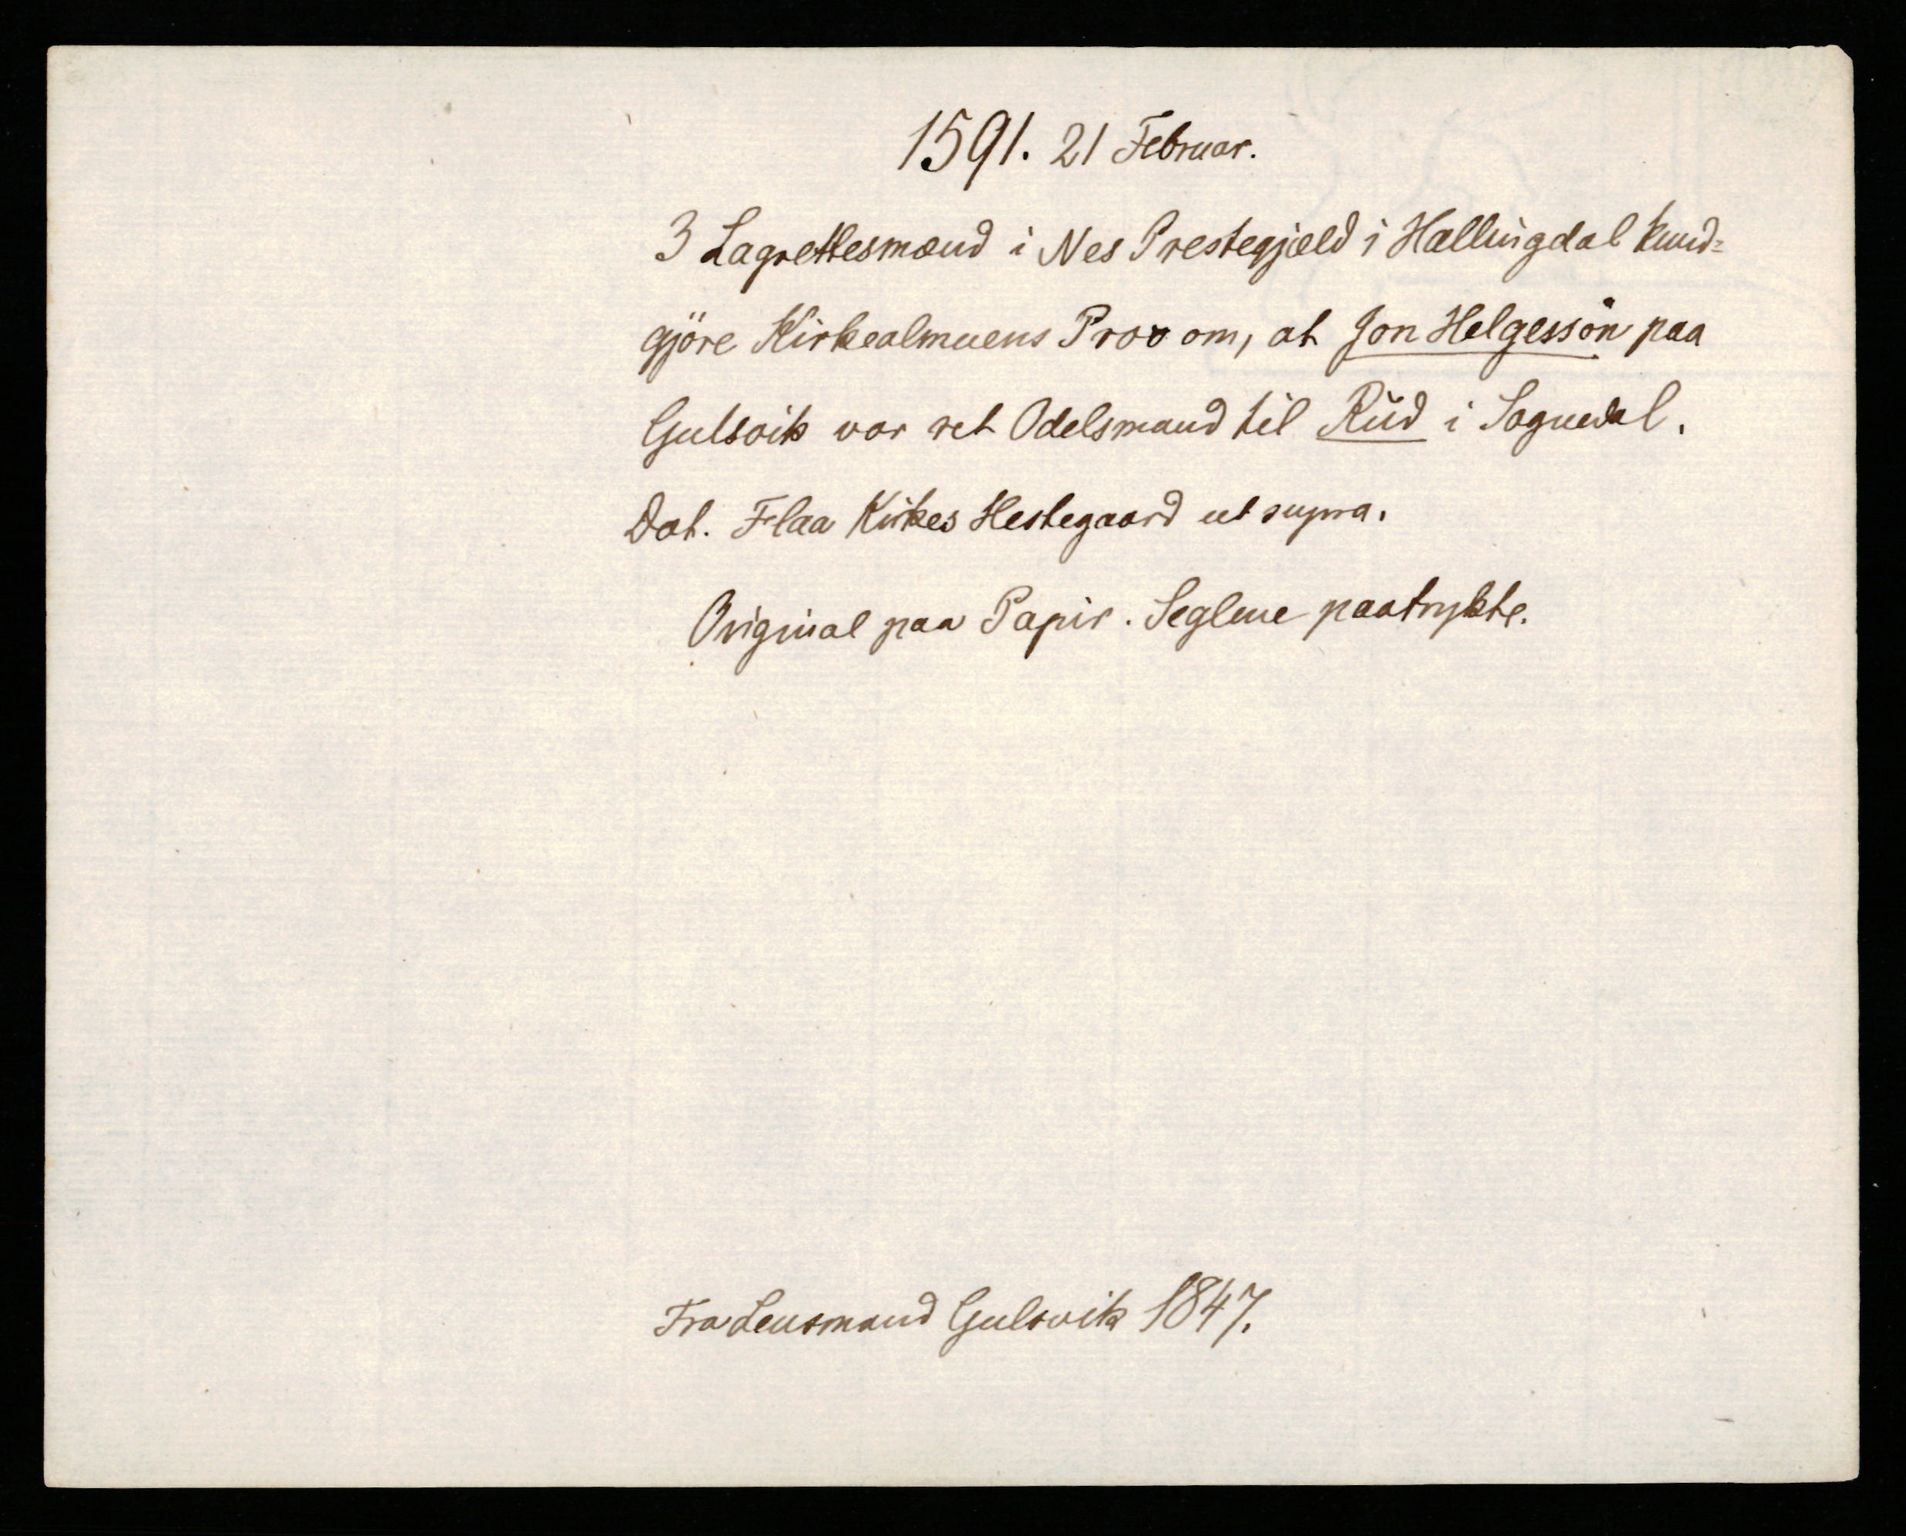 1591. 21 Februar.
3 Lagrettesmænd i Nes Prestegjæld i Hallingdal kund-
gjöre Kirkealmuens Prov om, at Jon Helgessön paa
Gulsvik var ret Odelsmand til Rud i Sognedal.
Dat. Flaa Kirkes Hestegaard ut supra.
Original paa Papir. Seglene paatrykte.
Fra Lensmand Gulsvik 1847.